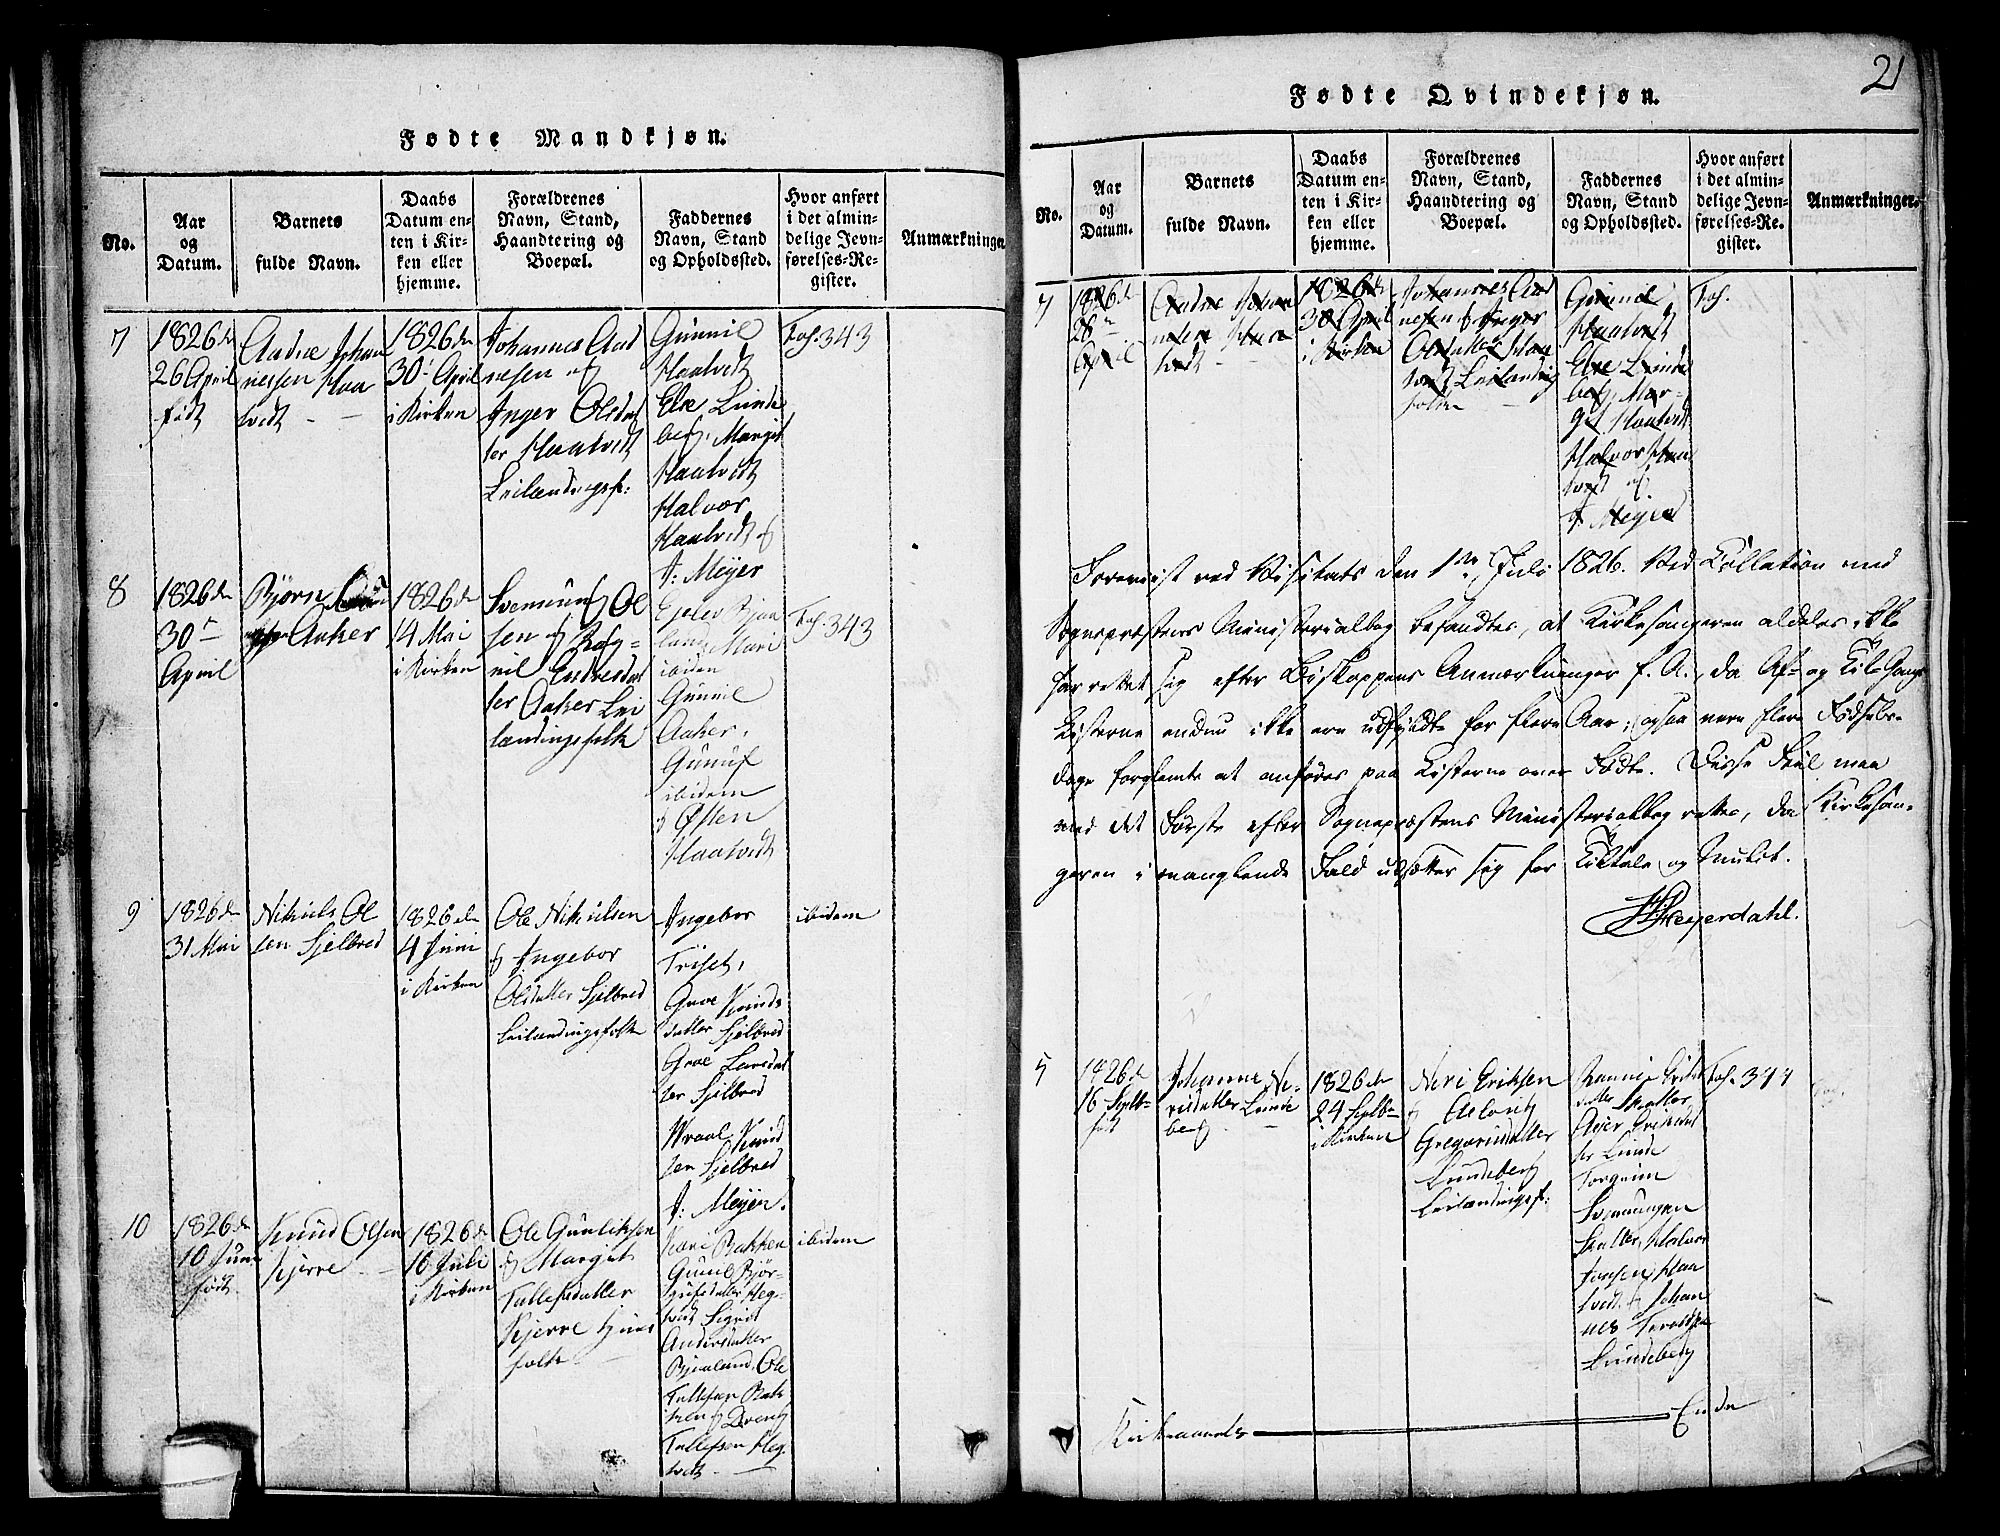 Fødte Mandkjøn.
No.
Aar
og
Datum.
Barnets
fulde Navn.
Daabs
Datum en-
ten i Kir-
ken eller
hjemme.
Forældrenes
Navn, Stand,
Haandtering og
Boepæl.
Faddernes
Navn, Stand
og Opholdssted.
Hvor anført
i det almin-
delige Jevn-
førelses-Re-
gister.
Anmærkninge
7
1826 dn
26 April
født
Aadne Johan
nessen Haa
tvedt
1826 dn
30 April
i Kirken
Johannes Aad
nesen og
Inger Olsdat
ter Haatvedt
Leilændingsf:
Gunnil
Haatvedt
Else Lunde
berg, Margit
Haatvedt
Halvor
Haatvedt og
J: Meyer
Fol. 343
8
1826 dn
30te
April
Bjørn
Aaker
1826 dn
14 Mai
i Kirken
Svenung Ol
sen og Rag-
nil Endresdat
ter Aaker Lei
lændingsfolk
Ejelev Bjaa
land, Mari
ibiden
Gunnil
Aaker,
Gunuf
ibidem
og Østen
Haatvedt
Fol. 343
9
1826 dn
31 Mai
Nikuls Ol
sen Sjelbred
1826 dn
4 Juni
i Kirken
Ole Nikulsen
og Ingebor
Olsdatter Sjelbred
Leilændingsfolk
Ingebor
Triset,
Groe Knuds
datter Sjelbred
Groe Larsdat
ter Sjelbred
Wraal Knud
sen Sjelbred
J: Meyer.
ibidem
10
1826 dn
10 Juni
født
Knud Olsen
Kjerre
1826 dn
16 Juli
i Kirken
Ole Gunliksen
og Margit
Tallefsdatter
Kjerre Huus
folk
Kari Bakken
Gunil Bjør-
gufsdatter Heg-
tvedt Sigrid
Andersdatter
Bjaaland, Ole
Tallefsen Bak
ken og Dreng
Tallefsen Heg
tvedt
ibidem
21
Fødte Qvindekjøn.
No.
Aar
og
Datum.
Barnets
fulde Navn.
Daabs
Datum en-
ten i Kir-
ken eller
hjemme.
Forældrenes
Navn, Stand,
Haandtering og
Boepæl.
Faddernes
Navn, Stand
og Opholdssted.
Hvor anført
i det almin-
delige Jevn-
førelses-Re-
gister.
Anmærkninger.
7
1826 d
28de
April
Aadne Johan
nesen Haa
tvedt
1826 dn
30 April
i Kirken
Johannes Aad
nesen og Inger
Olsdatter Haa
tvedt Leilændings
folk
Gunnil
Haatvedt
Else Lunde
berg, Mar-
git Haatvedt
Halvor Haa
tvedt og
J. Meyer
Fol.
Foreviist ved Visitats den 1ste Juli 1826. Ved Collation med
Sognepræstens Ministerialbog befandtes, at Kirkesangeren aldeles ikke
har rettet sig efter Biskoppens Anmærkninger f. A., da Af- og Tilgangs
Listerne endnu ikke ere udfyldte for flere Aar; ogsaa vare flere Fødsels-
dage forglemte at anføres paa Listerne over Fødte. Disse Feil maa
med det Første efter Sognepræstens Ministerialbog rettes, da Kirkesan-
geren i manglende Fald udsætter sig for Tiltale og Mulct.
Heyerdahl.
5
1826 d
16 Septb-
født
Johanne Ne-
risdatter Lunde
berg
1826 dn
24 Septb-
i Kirken
Neri Eriksen
og Aslaug
Gregoriusdatter
Lundeberg
Leilændingsf:
Ranni Eriks
datter Skatter
Asjer Eriksdat
ter Lunde
Torgrim
Svenungsen
Skatter, Halvor
Jansen Haa
tvedt og Johan
nes
Lundeberg
Fol. 344
Kirkeaarets Ende